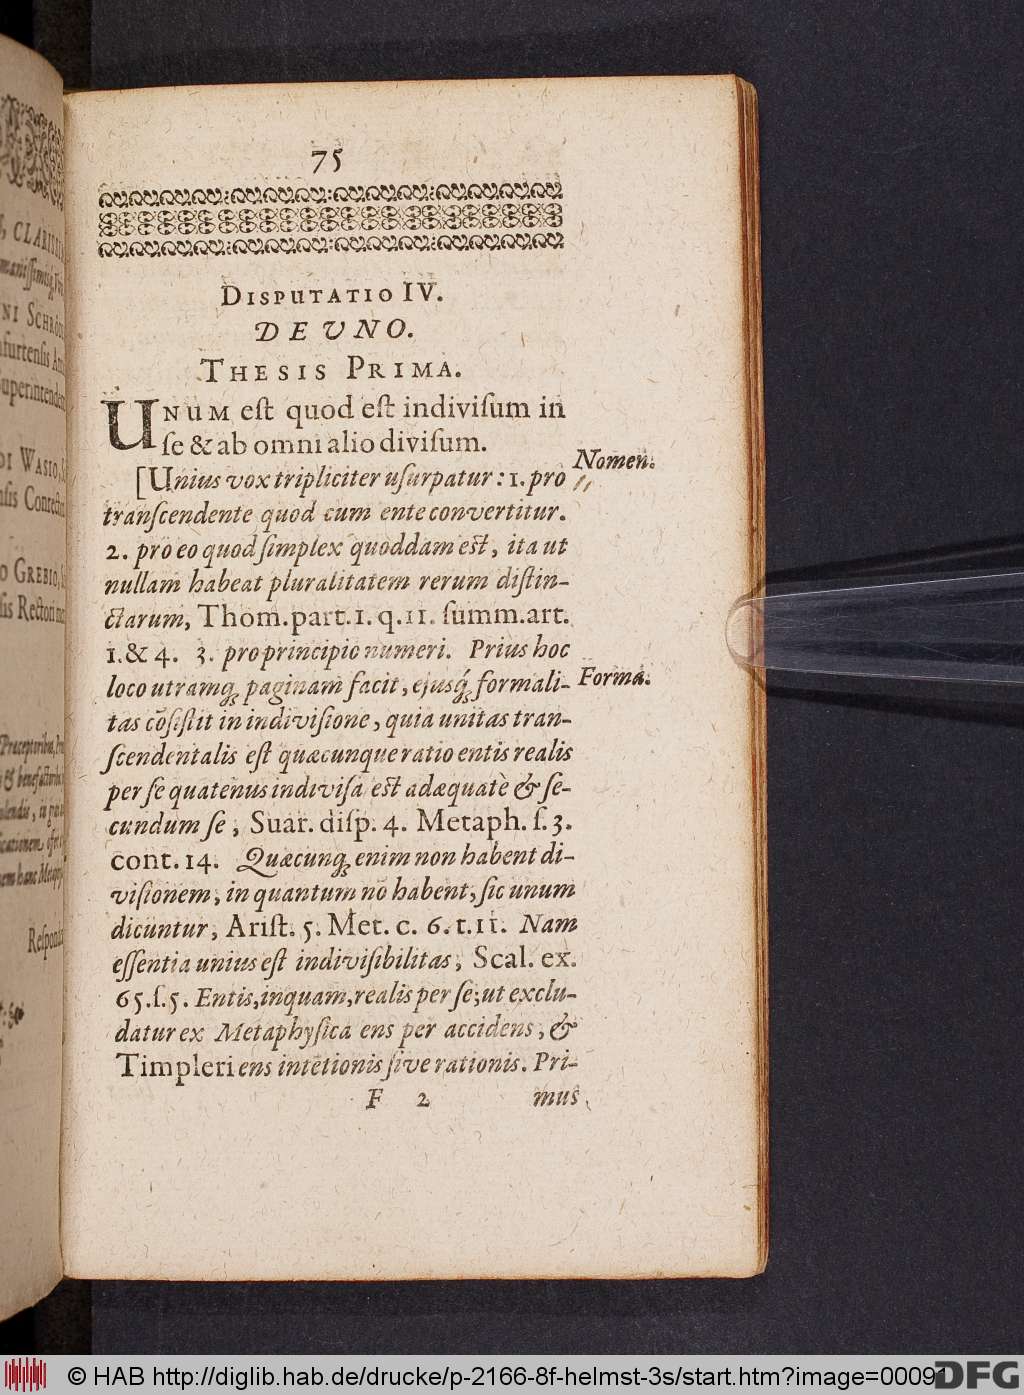 75
DISPUTATIO IV.
DE UNO.
THESIS PRIMA.
UNUM eſt quod eſt indiviſum in
ſe & ab omni alio diviſum.
Nomen.
[Unius vox tripliciter uſurpatur: 1. pro
tranſcendente quod cum ente convertitur.
2. pro eo quod ſimplex quoddam eſt, ita ut
nullam habeat pluralitatem rerum diſtin-
ctarum, Thom. part. 1. q. 11. ſumm. art.
1. & 4. 3. pro principio numeri. Prius hoc
loco utramq; paginam facit, ejusq́; formali-
Forma.
tas cõſiſtit in indiviſione, quia unitas tran-
ſcendentalis eſt quæcunque ratio entis realis
per ſe quatenus indiviſa eſt adæquatè & ſe-
cundum ſe, Suar. diſp. 4. Metaph. ſ. 3.
cont. 14. Quæcunq; enim non habent di-
viſionem, in quantum nõ habent, ſic unum
dicuntur, Ariſt. 5. Met. c. 6. t. 11. Nam
eſſentia unius eſt indiviſibilitas, Scal. ex.
65. ſ. 5. Entis, inquam, realis per ſe; ut exclu-
datur ex Metaphyſica ens per accidens, &
Timpleri ens intẽtionis ſive rationis. Pri-
F 2 mus
, CLARISSI
NI SCHRÖ
furtenſis
Superintenden
DI WASIO,
nſis Conrect
O GREBIO,
ſis Rectori
Præceptoribus,
& benefactori
Reſpon
© HAB http://diglib.hab.de/drucke/p-2166-8f-helmst-3s/start.htm?image=00091
DFG